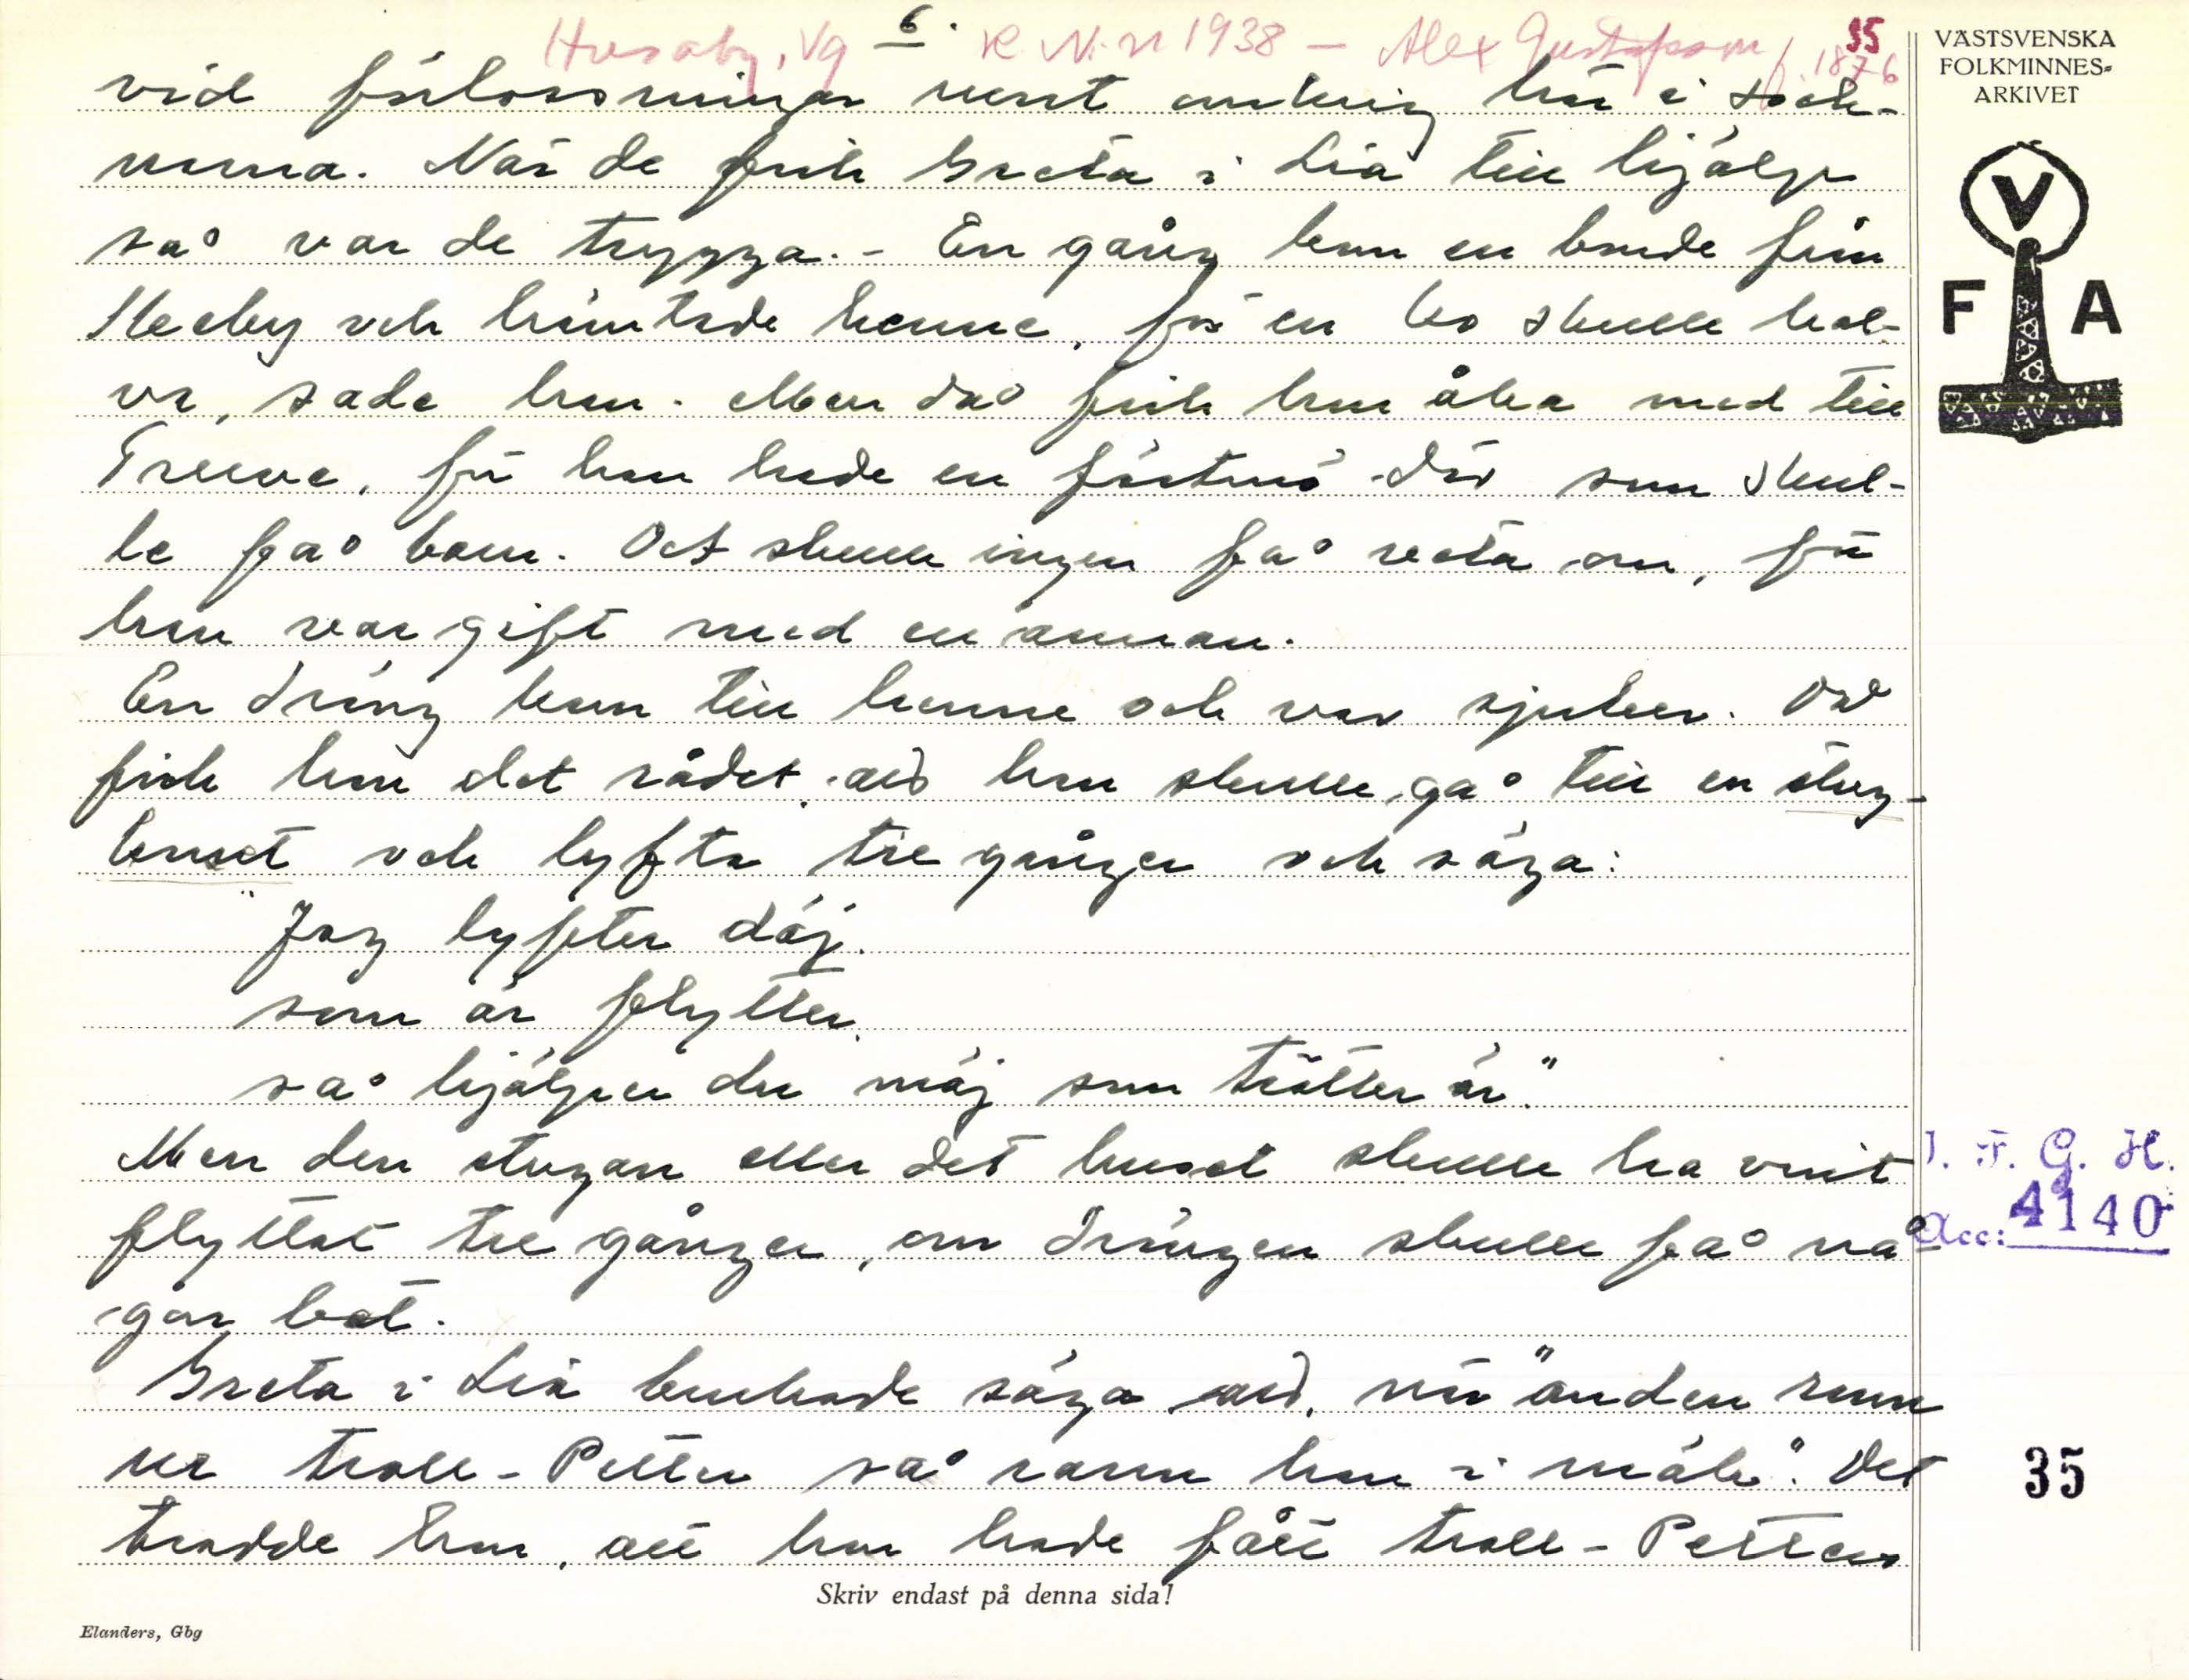 6.
Husaby, Vg K N-n 1938 – Alex Gustafsson f. 1876
35
VÄSTSVENSKA
FOLKMINNES-
ARKIVET
V
F A
vid förlossningar runt omkring här i sock-
narna. När de fick Greta i Lia till hjälp
så var de trygga. – En gång kom en bonde från
Skeby och hämtade henne, för en ko skulle kal-
va, sade han. Men då fick hon åka med till
Treeva, för han hade en fästmö där som skul-
le få barn. Det skulle ingen få veta om, för
han var gift med en annan.
En dräng kom till henne och var sjuker. Då
fick han det rådet, att han skulle gå till en stug-
knut och lyfta tre gånger och säga:
"Jag lyfter däj
som är flytter,
så hjälper du mäj som trötter är."
Men den stugan eller det huset skulle ha varit
flyttat tre gånger, om drängen skulle få nå-
gon bot.
Greta i Lia brukade säga att, när "anden rann
ur troll-Petter så rann han i mäk". Det
trodde hon, att hon hade fått troll-Petters
I. F. G. H.
Acc: 4140
35
Skriv endast på denna sida!
Elanders, Gbg